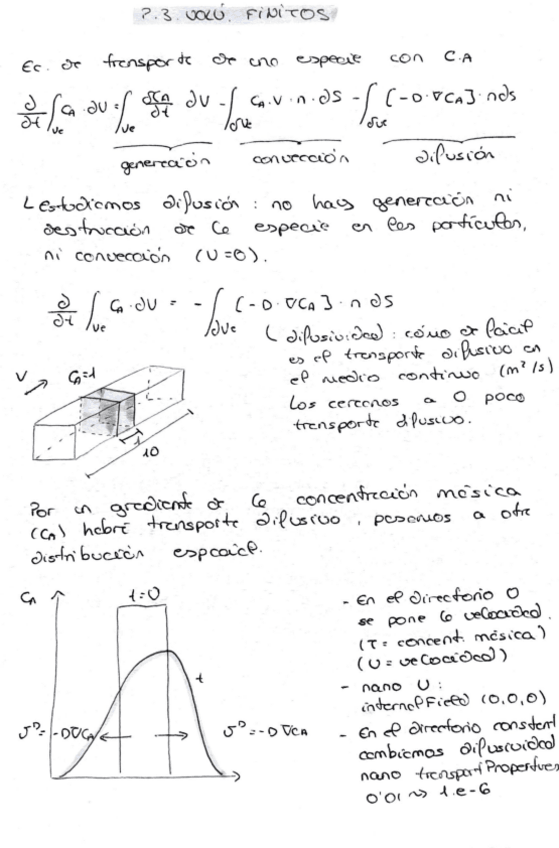 P.3. VOLÚ. FINITOS
Ec. de transporte de una especie con C.A
∂/∂t ∫Vc CA · dV = ∫Vc ∂CA/∂t dV - ∫∂Vc CA · V · n · dS - ∫∂Vc [-D · ∇CA] · n dS
generación convección difusión
↳ estudiamos difusión : no hay generación ni
destrucción de la especie en las partículas,
ni convección (U=0).
∂/∂t ∫Vc CA · dV = - ∫∂Vc [-D · ∇CA] · n dS
( difusividad : cómo de fácil
es el transporte difusivo en
el medio continuo (m²/s)
Los cercanos a 0 poco
transporte difusivo.
V CA=1
1
10
Por un gradiente de la concentración másica
(CA) habrá transporte difusivo, pasamos a otra
distribución espacial.
CA t=0
t
J^D = -D∇CA J^D = -D∇CA
- En el directorio 0
se pone la velocidad.
(T = concent. másica)
(U = velocidad)
- nano U :
internalField (0,0,0)
- En el directorio constant
cambiamos difusividad
nano transportProperties
0'01 ~> 1.e-6